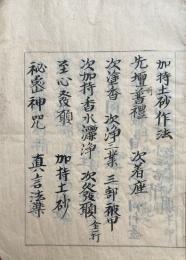 加持土砂作法
先壇前普禮　次着座
次塗香　次浄三業　三部被甲
次加持香水灑浄　次發願金二丁
至心發願　加持土砂
秘密神咒　真言法樂